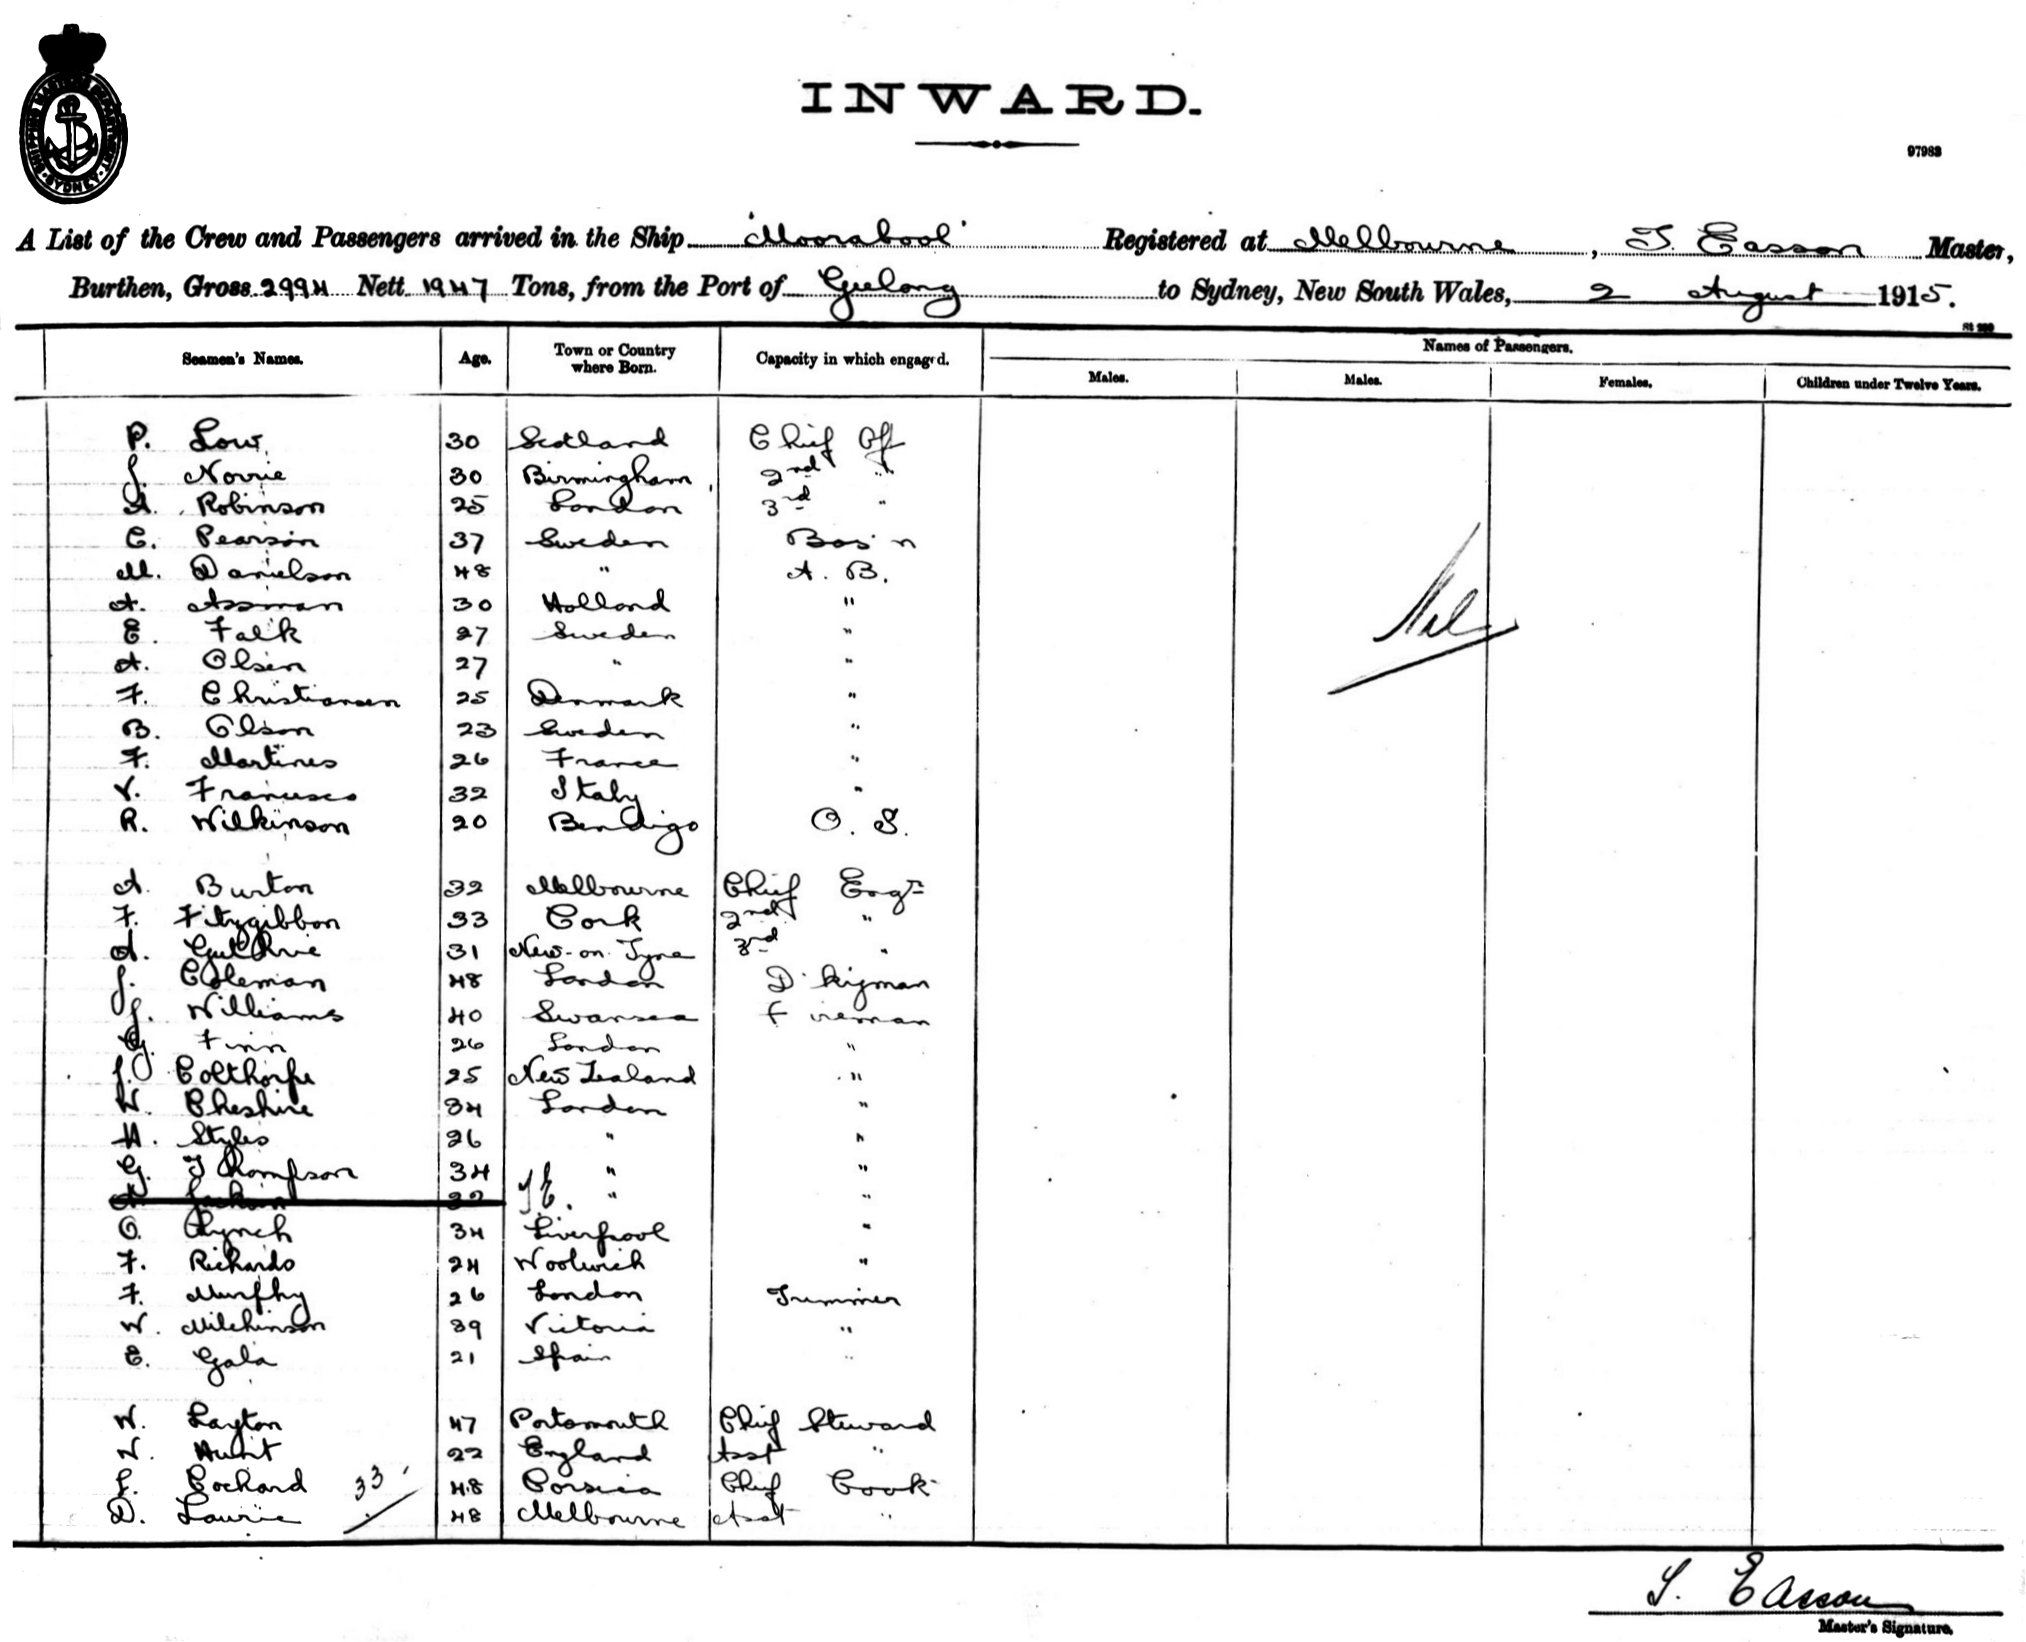 INWARD.
97983
A List of the Crew and Passengers arrived in the Ship 'Moorabool' Registered at Melbourne, T. Easson Master,
Burthen, Gross 2994 Nett 1947 Tons, from the Port of Geelong to Sydney, New South Wales, 2 August 1915.
Seamen's Names. Age. Town or Country where Born. Capacity in which engaged. Names of Passengers.
Males. Males. Females. Children under Twelve Years.
P. Low 30 Scotland Chief Off
J. Norrie 30 Birmingham 2nd "
A. Robinson 25 London 3rd "
C. Pearson 37 Sweden Bos'n
M. Danielson 48 " A. B.
A. Assman 30 Holland "
E. Falk 27 Sweden "
A. Olsen 27 " "
F. Christiansen 25 Denmark "
B. Olson 23 Sweden "
F. Martines 26 France "
V. Francesco 32 Italy "
R. Wilkinson 20 Bendigo O. S.
Nil
A. Burton 32 Melbourne Chief Engr
F. Fitzgibbon 33 Cork 2nd "
A. Guthrie 31 New-on-Tyne 3rd "
J. Coleman 48 London D'kyman
J. Williams 40 Swansea Fireman
G. Finn 26 London "
J. Colthorpe 25 New Zealand "
W. Cheshire 34 London "
H. Styles 26 " "
G. Thompson 34 " "
A. Jackson 32 T.E. " "
O. Lynch 34 Liverpool "
F. Richards 24 Woolwich "
F. Murphy 26 London Trimmer
W. Mitchinson 39 Victoria "
E. Gala 21 Spain "
W. Layton 47 Portsmouth Chief Steward
W. Hunt 22 England Asst "
L. Cochard 33 48 Corsica Chief Cook
D. Laurie 48 Melbourne Asst "
T. Easson
Master's Signature.